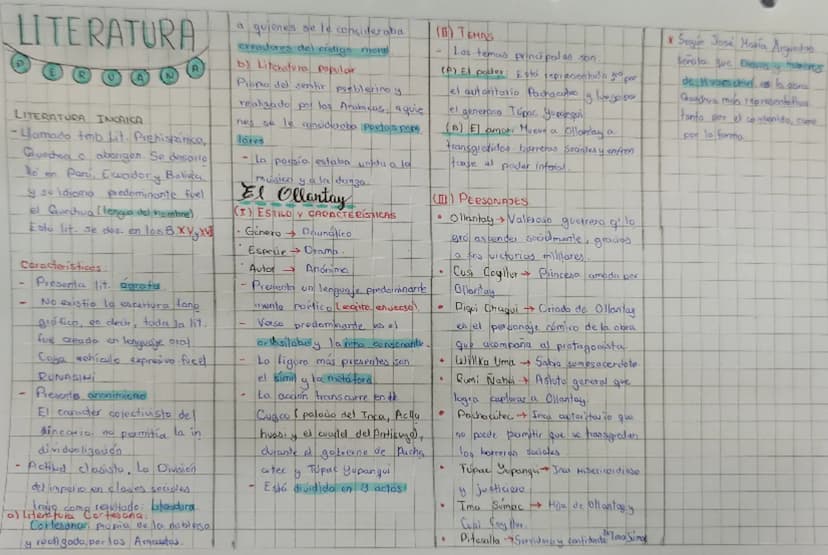 LITERATURA
PERUANA
LITERATURA INCAICA
- Llamado tmb Lit. Prehispánica,
Quechua o aborigen Se desarro
lló en Perú, Ecuador y Bolivia
y su idioma predominante fue
el Quechua (lengua del hombre)
Esta lit. se da en los S. XV y XVI
Características
- Presenta lit. ágrafa
- No existió la escritura fono
gráfica, es decir, toda la lit.
fue creada en lenguaje oral
Cuyo vehículo expresivo fue el
RUNASIMI
- Presenta anonimismo
El carácter colectivista del
incario no permitía la in
dividualización
- Actitud clasista, La División
del imperio en clases sociales
trajo como resultado: literatura
a) Literatura Cortesana:
Cortesana: propia de la nobleza
y realizada por los Amautas.
a quienes se le consideraba
creadores del código moral
b) Literatura popular
Propia del sentir pueblerino y
realizado por los Aravicus, a quie
nes se le consideraba poetas popu
lares
- La poesía estaba unida a la
música y a la danza
El Ollantay
(I) ESTILO Y CARACTERÍSTICAS
· Género → Dramático
· Especie → Drama.
· Autor → Anónimo
- Presenta un lenguaje predominante
mente poético (escrito en verso)
- Verso predominante es el
octosílabo y la rima consonante.
- La figura más presentes son
el símil y la metáfora
- La acción transcurre en
Cuzco (palacio del Inca, Aclla
huasi y el cuartel del Antisuyo),
durante el gobierno de Pacha
cútec y Túpac Yupanqui
- Está dividida en 3 actos
(II) TEMAS
- Los temas principales son
(A) El poder: Está representado por
el autoritario Pachacútec y luego por
el generoso Túpac Yupanqui
(B) El amor: Mueve a Ollantay a
transgredir barreras sociales y enfren
tarse al poder imperial.
(III) PERSONAJES
• Ollantay → Valeroso guerrero q' lo
gró ascender socialmente, gracias
a sus victorias militares.
• Cusi Coyllur → Princesa amada por
Ollantay
• Piqui Chaqui → Criado de Ollantay
es el personaje cómico de la obra
que acompaña al protagonista.
• Willka Uma → Sabio sumo sacerdote
• Rumi Ñahui → Astuto general que
logra capturar a Ollantay.
• Pachacútec → Inca autoritario que
no puede permitir que se transgredan
las barreras sociales
• Túpac Yupanqui → Inca misericordioso
y justiciero
• Ima Súmac → Hija de Ollantay y
Cusi Coyllur.
• Pitusalla → Servidora y confidente de Ima Súmac
* Según José María Arguedas
señala que Dioses y hombres
de Huarochirí es la obra
Quechua más representativa
tanto por el contenido como
por la forma.